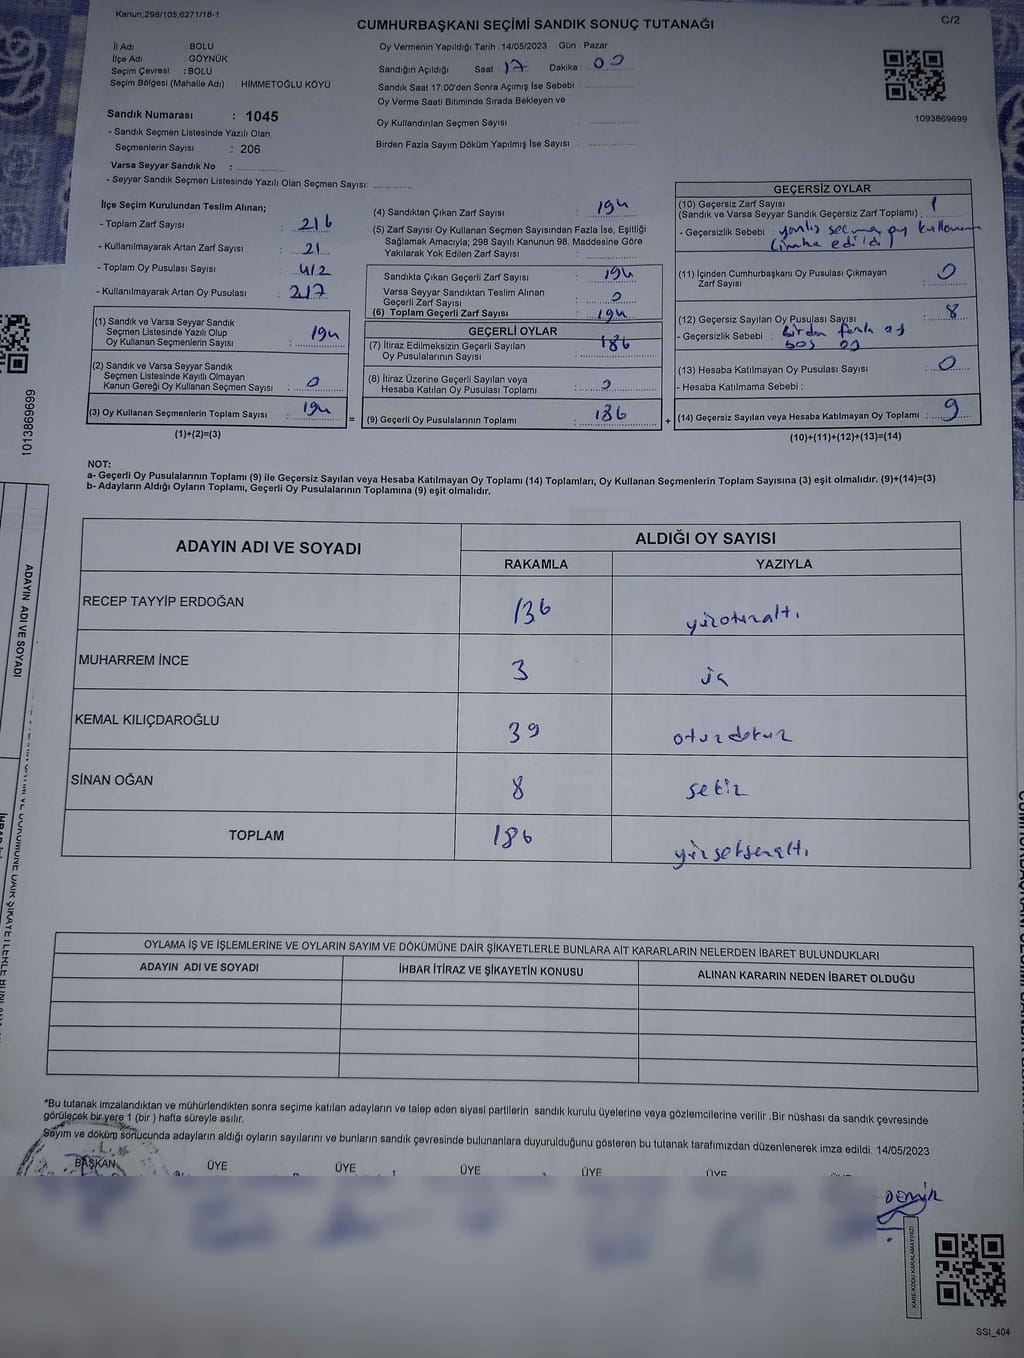 Kanun:298/105,6271/18-1
CUMHURBAŞKANI SEÇİMİ SANDIK SONUÇ TUTANAĞI
C/2
İl Adı : BOLU
İlçe Adı : GÖYNÜK
Seçim Çevresi : BOLU
Seçim Bölgesi (Mahalle Adı) : HİMMETOĞLU KÖYÜ
Oy Vermenin Yapıldığı Tarih : 14/05/2023 Gün : Pazar
Sandığın Açıldığı Saat : 17 Dakika : 00
Sandık Saat 17:00'den Sonra Açımış İse Sebebi :
Oy Verme Saati Bitiminde Sırada Bekleyen ve
Oy Kullandırılan Seçmen Sayısı :
Birden Fazla Sayım Döküm Yapılmış İse Sayısı :
1093869699
Sandık Numarası : 1045
- Sandık Seçmen Listesinde Yazılı Olan
Seçmenlerin Sayısı : 206
Varsa Seyyar Sandık No :
- Seyyar Sandık Seçmen Listesinde Yazılı Olan Seçmen Sayısı:
İlçe Seçim Kurulundan Teslim Alınan;
- Toplam Zarf Sayısı : 216
- Kullanılmayarak Artan Zarf Sayısı : 21
- Toplam Oy Pusulası Sayısı : 412
- Kullanılmayarak Artan Oy Pusulası : 217
(1) Sandık ve Varsa Seyyar Sandık
Seçmen Listesinde Yazılı Olup
Oy Kullanan Seçmenlerin Sayısı : 194
(2) Sandık ve Varsa Seyyar Sandık
Seçmen Listesinde Kayıtlı Olmayan
Kanun Gereği Oy Kullanan Seçmen Sayısı : 0
(3) Oy Kullanan Seçmenlerin Toplam Sayısı : 194
(1)+(2)=(3)
(4) Sandıktan Çıkan Zarf Sayısı : 194
(5) Zarf Sayısı Oy Kullanan Seçmen Sayısından Fazla İse, Eşitliği
Sağlamak Amacıyla; 298 Sayılı Kanunun 98. Maddesine Göre
Yakılarak Yok Edilen Zarf Sayısı :
Sandıkta Çıkan Geçerli Zarf Sayısı : 194
Varsa Seyyar Sandıktan Teslim Alınan
Geçerli Zarf Sayısı : 0
(6) Toplam Geçerli Zarf Sayısı : 194
GEÇERLİ OYLAR
(7) İtiraz Edilmeksizin Geçerli Sayılan
Oy Pusulalarının Sayısı : 186
(8) İtiraz Üzerine Geçerli Sayılan veya
Hesaba Katılan Oy Pusulası Toplamı : 0
= (9) Geçerli Oy Pusulalarının Toplamı : 186
GEÇERSİZ OYLAR
(10) Geçersiz Zarf Sayısı
(Sandık ve Varsa Seyyar Sandık Geçersiz Zarf Toplamı) : 1
- Geçersizlik Sebebi : yanlış seçmen oy kullanımı
imha edildi
(11) İçinden Cumhurbaşkanı Oy Pusulası Çıkmayan
Zarf Sayısı : 0
(12) Geçersiz Sayılan Oy Pusulası Sayısı : 8
- Geçersizlik Sebebi : birden fazla oy
boş oy
(13) Hesaba Katılmayan Oy Pusulası Sayısı : 0
- Hesaba Katılmama Sebebi :
+ (14) Geçersiz Sayılan veya Hesaba Katılmayan Oy Toplamı : 9
(10)+(11)+(12)+(13)=(14)
NOT:
a- Geçerli Oy Pusulalarının Toplamı (9) ile Geçersiz Sayılan veya Hesaba Katılmayan Oy Toplamı (14) Toplamları, Oy Kullanan Seçmenlerin Toplam Sayısına (3) eşit olmalıdır. (9)+(14)=(3)
b- Adayların Aldığı Oyların Toplamı, Geçerli Oy Pusulalarının Toplamına (9) eşit olmalıdır.
ADAYIN ADI VE SOYADI
ALDIĞI OY SAYISI
RAKAMLA YAZIYLA
RECEP TAYYİP ERDOĞAN 136 yüzotuzaltı
MUHARREM İNCE 3 üç
KEMAL KILIÇDAROĞLU 39 otuzdokuz
SİNAN OĞAN 8 sekiz
TOPLAM 186 yüzseksenaltı
OYLAMA İŞ VE İŞLEMLERİNE VE OYLARIN SAYIM VE DÖKÜMÜNE DAİR ŞİKAYETLERLE BUNLARA AİT KARARLARIN NELERDEN İBARET BULUNDUKLARI
ADAYIN ADI VE SOYADI İHBAR İTİRAZ VE ŞİKAYETİN KONUSU ALINAN KARARIN NEDEN İBARET OLDUĞU
*Bu tutanak imzalandıktan ve mühürlendikten sonra seçime katılan adayların ve talep eden siyasi partilerin sandık kurulu üyelerine veya gözlemcilerine verilir .Bir nüshası da sandık çevresinde
görülecek bir yere 1 (bir ) hafta süreyle asılır.
Sayım ve döküm sonucunda adayların aldığı oyların sayılarını ve bunların sandık çevresinde bulunanlara duyurulduğunu gösteren bu tutanak tarafımızdan düzenlenerek imza edildi. 14/05/2023
BAŞKAN ÜYE ÜYE ÜYE ÜYE ÜYE
DEMİR
KARE KODU KARALAMAYINIZ!
SSI_404
1013869699
ADAYIN ADI VE SOYADI